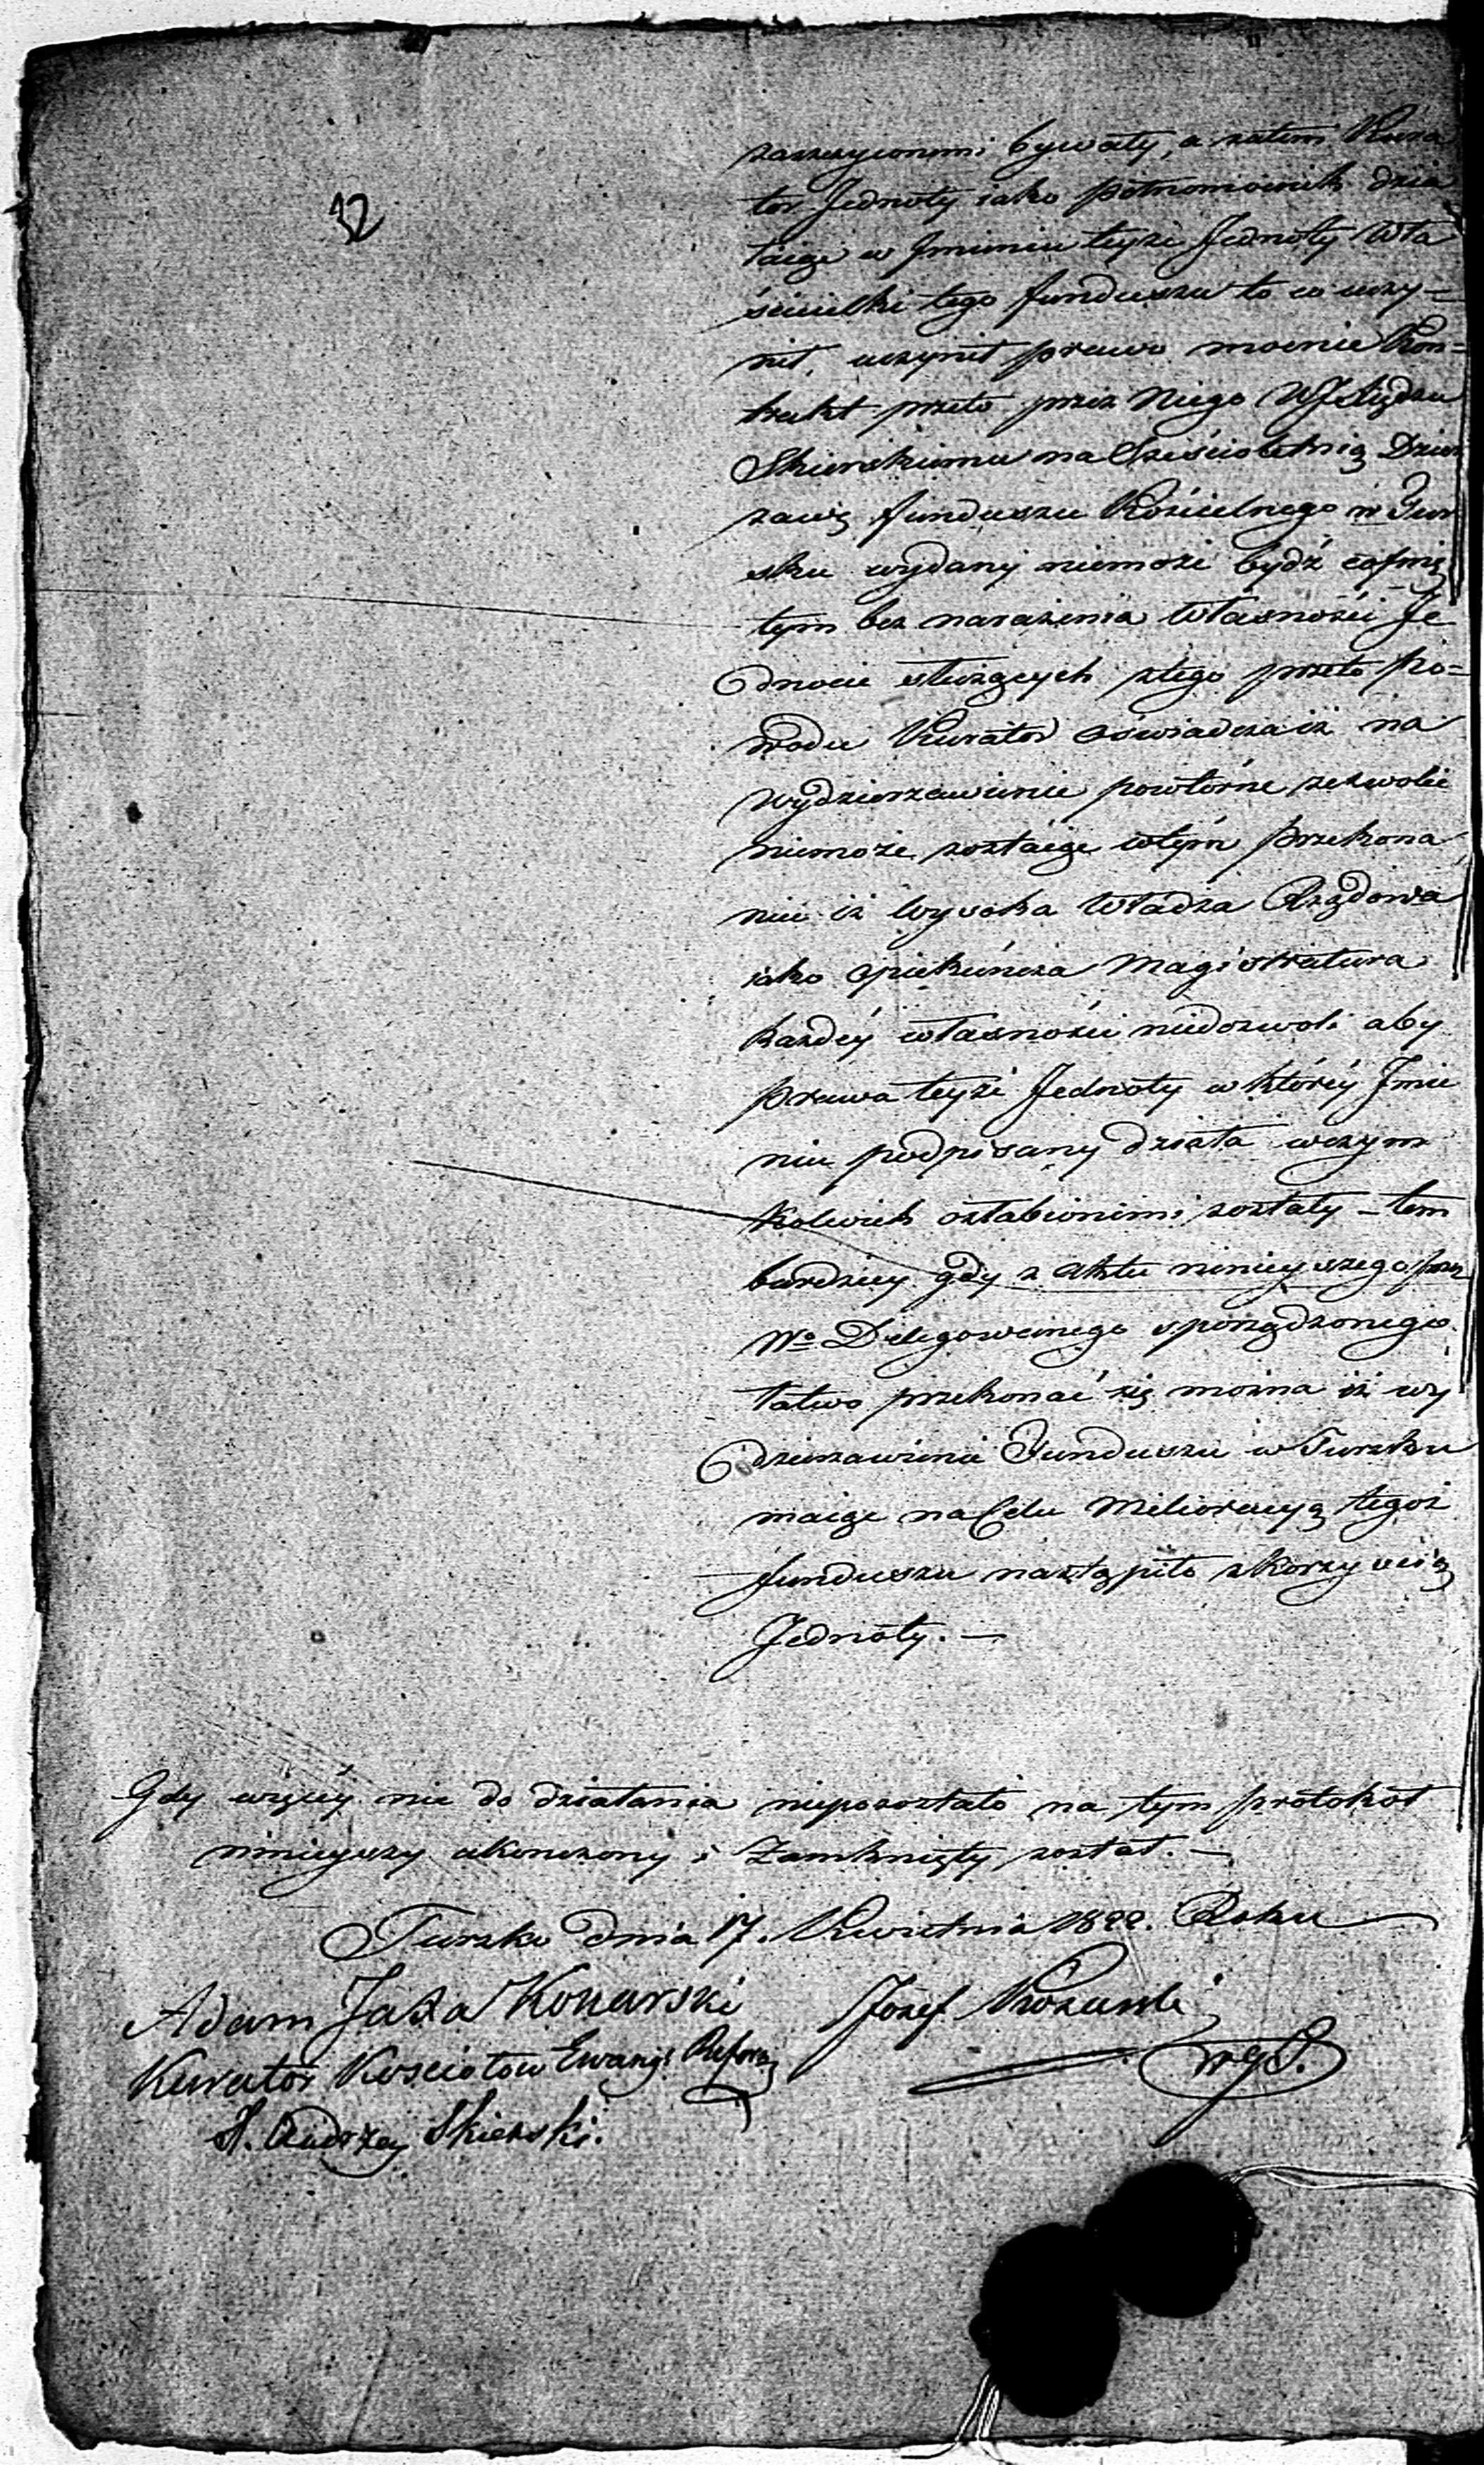 32
zaszczyconemi bywały, a zatem Kura
tor Jednoty iako pełnomocnik dzia
łaiąc w Imieniu teyże Jednoty Wła
ścicielki tego funduszu to co uczy=
nił, uczynił prawo mocnie Kon=
trakt przeto przez Niego WJXiędzu
Skierskiemu na Sześcioletnią Dzier
zawę funduszu Kościelnego w Tur
sku wydany niemoże bydź cofnię
tym bez narażenia własności Je
dnocie służących z tego przeto po=
wodu Kurator oświadcza iż na
wydzierzawienie powtórne zezwolić
niemoże zostaiąc w tym przekona
niu iż Wysoka Władza Rządowa
iako opiekuńcza Magistratura
każdéy własności niedozwoli aby
prawa teyże Jednoty w któréy Imie
niu podpisany działa w czym
kolwiek osłabionemi zostały – tem
bardziey gdy z Aktu ninieyszego przez
Wo Delegowanego sporządzonego
łatwo przekonać się można iż wy
dzierzawienie Funduszu w Tursku
maiąc na Celu Melioracyą tegoż
funduszu nastąpiło z korzyścią
Jednoty. —
Gdy więcéy nic do działania niepozostało na tym protokoł
ninieyszy ukończony i Zamknięty został. —
Tursko dnia 17. Kwietnia 1822. Roku
Adam Jaxa Konarski Józef
Kurator Kosciołow Ewang: Reform
X. Andrzey Skierski.